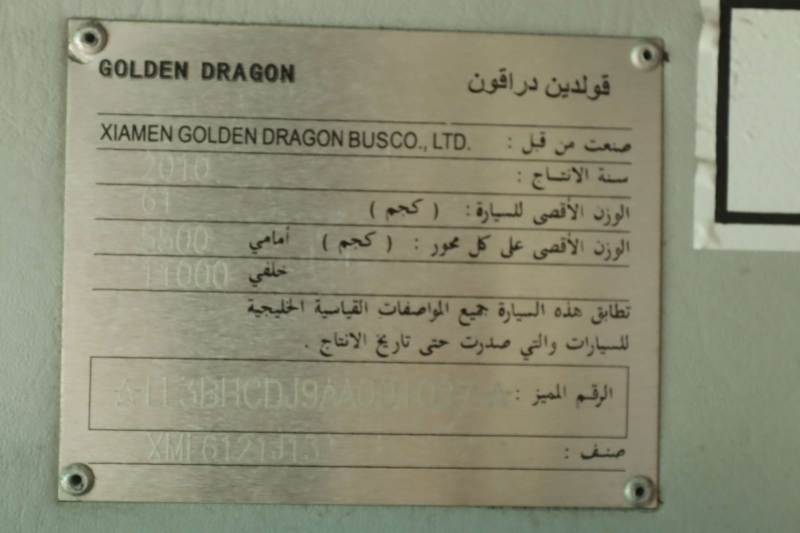 GOLDEN DRAGON قولدين دراقون
صنعت من قبل : XIAMEN GOLDEN DRAGON BUSCO., LTD.
سنة الانتاج : 2010
الوزن الأقصى للسيارة : ( كجم ) 61
الوزن الأقصى على كل محور : ( كجم ) أمامي 5500
خلفي 11000
تطابق هذه السيارة جميع المواصفات القياسية الخليجية
للسيارات والتي صدرت حتى تاريخ الانتاج .
الرقم المميز :
صنف :